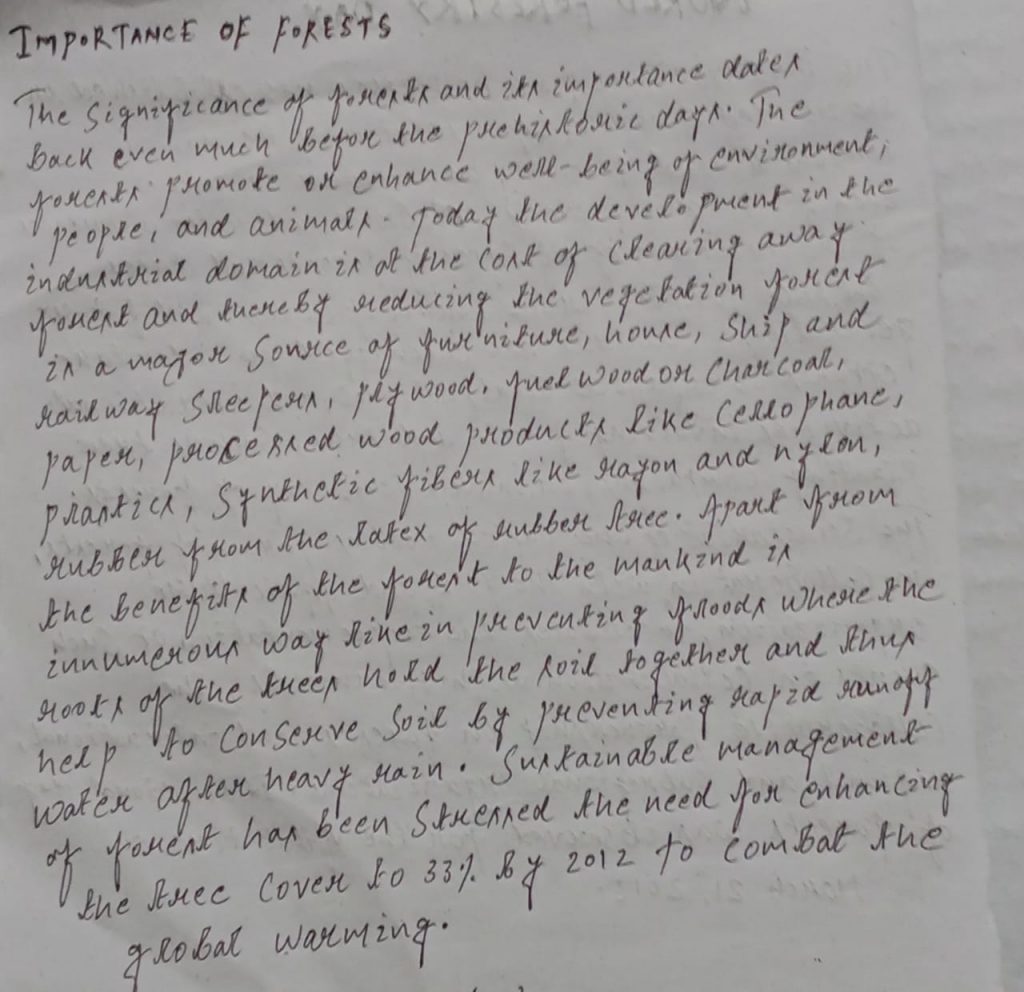 IMPORTANCE OF FORESTS
The significance of forests and its importance dates
back even much before the prehistoric days. The
forests promote or enhance well-being of environment,
people, and animals. Today the development in the
industrial domain is at the cost of clearing away
forest and thereby reducing the vegetation forest
is a major source of furniture, house, ship and
railway sleepers, plywood, fuel wood or charcoal,
paper, processed wood products like cellophane,
plastics, synthetic fibers like rayon and nylon,
rubber from the latex of rubber tree. Apart from
the benefits of the forest to the mankind is
innumerous way like in preventing floods where the
roots of the trees hold the soil together and thus
help to conserve soil by preventing rapid runoff
water after heavy rain. Sustainable management
of forest has been stressed the need for enhancing
the tree cover to 33% by 2012 to combat the
global warming.